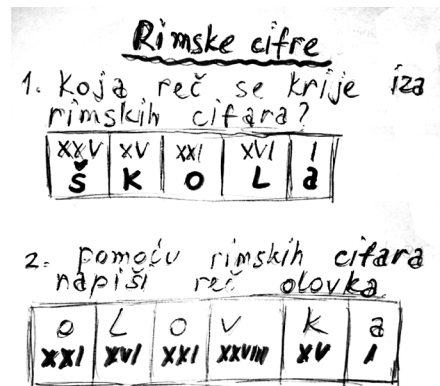 Rimske cifre
1. Koja reč se krije iza
rimskih cifara?
XXV XV XXI XVI I
Š K O L a
2. pomoću rimskih cifara
napiši reč olovka
o L o v k a
XXI XVI XXI XXVIII XV I